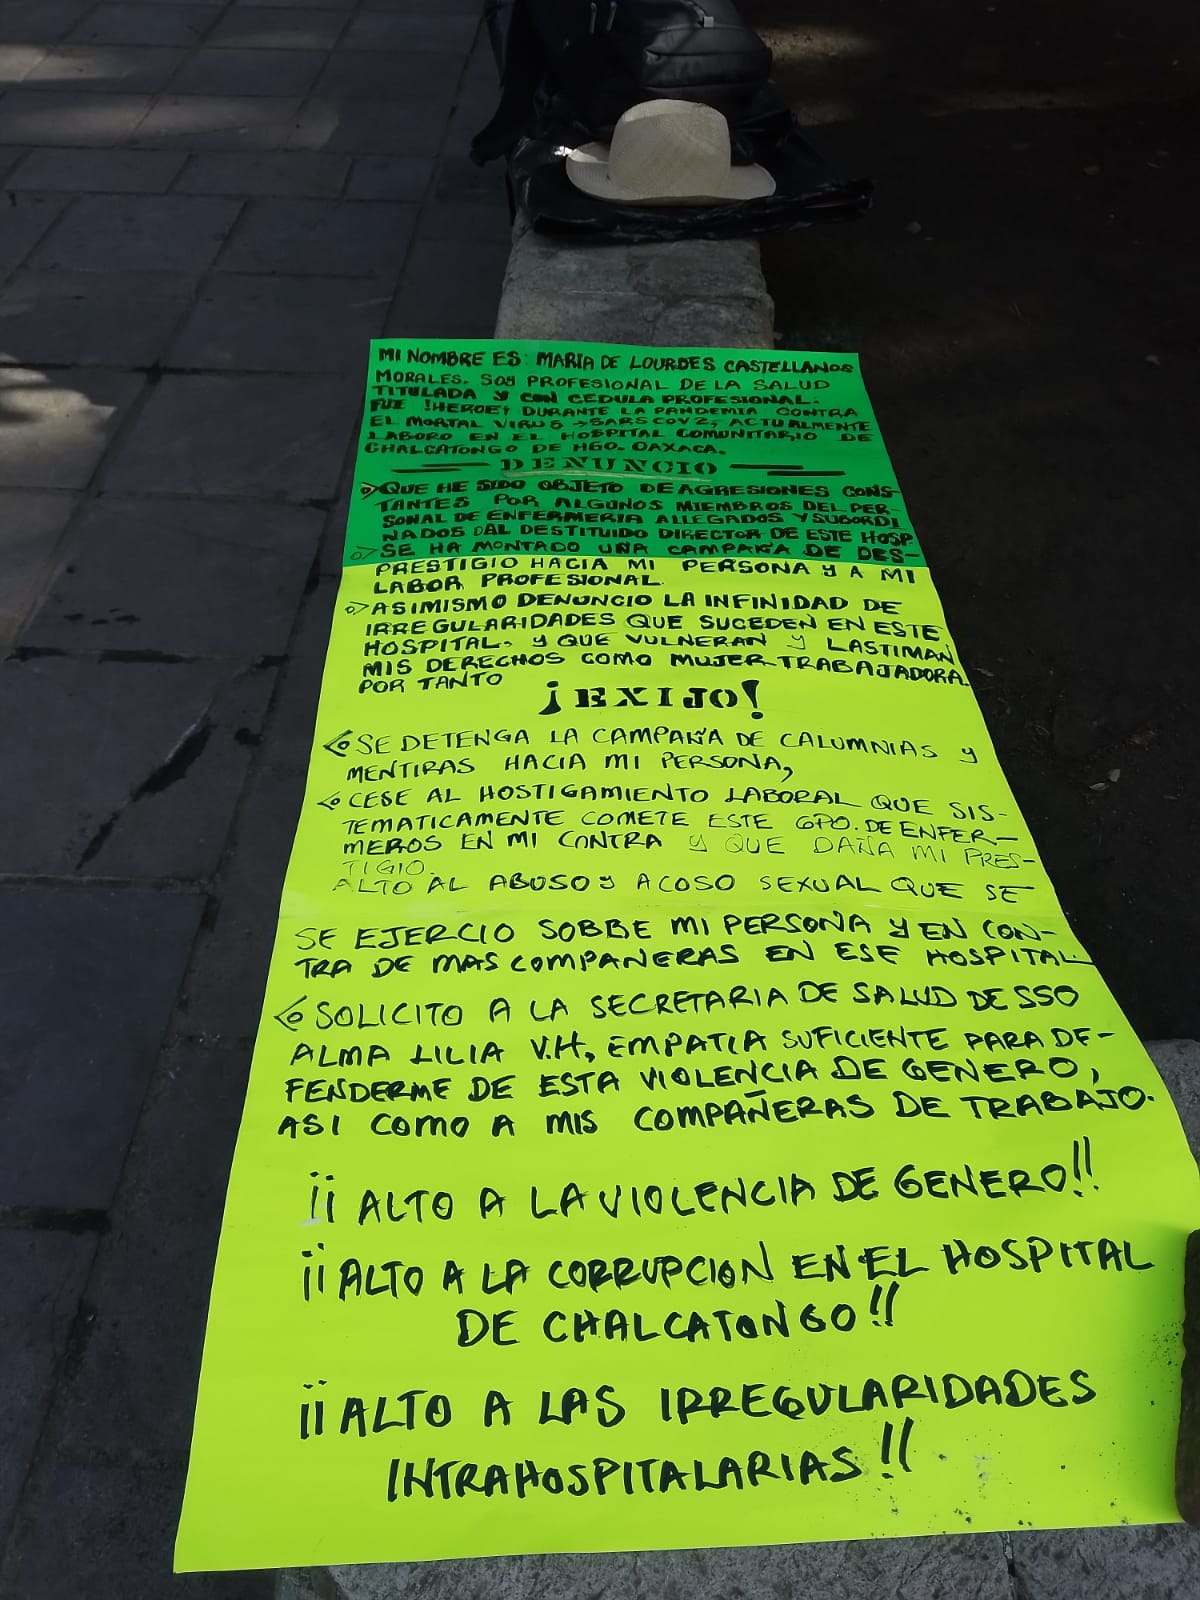 MI NOMBRE ES: MARIA DE LOURDES CASTELLANOS
MORALES. SOY PROFESIONAL DE LA SALUD
TITULADA Y CON CEDULA PROFESIONAL.
FUI ¡HEROE! DURANTE LA PANDEMIA CONTRA
EL MORTAL VIRUS → SARS COV2, ACTUALMENTE
LABORO EN EL HOSPITAL COMUNITARIO DE
CHALCATONGO DE HGO. OAXACA.
DENUNCIO
QUE HE SIDO OBJETO DE AGRESIONES CONS-
TANTES POR ALGUNOS MIEMBROS DEL PER-
SONAL DE ENFERMERIA ALLEGADOS Y SUBORDI
NADOS DAL DESTITUIDO DIRECTOR DE ESTE HOSP.
SE HA MONTADO UNA CAMPAÑA DE DES-
PRESTIGIO HACIA MI PERSONA Y A MI
LABOR PROFESIONAL.
ASIMISMO DENUNCIO LA INFINIDAD DE
IRREGULARIDADES QUE SUCEDEN EN ESTE
HOSPITAL, Y QUE VULNERAN Y LASTIMAN
MIS DERECHOS COMO MUJER TRABAJADORA.
POR TANTO
¡EXIJO!
SE DETENGA LA CAMPAÑA DE CALUMNIAS Y
MENTIRAS HACIA MI PERSONA,
CESE AL HOSTIGAMIENTO LABORAL QUE SIS-
TEMATICAMENTE COMETE ESTE GPO. DE ENFER-
MEROS EN MI CONTRA Y QUE DAÑA MI PRES-
TIGIO.
ALTO AL ABUSO Y ACOSO SEXUAL QUE SE
SE EJERCIO SOBRE MI PERSONA Y EN CON-
TRA DE MAS COMPAÑERAS EN ESE HOSPITAL
SOLICITO A LA SECRETARIA DE SALUD DE SSO
ALMA LILIA V.H, EMPATIA SUFICIENTE PARA DE-
FENDERME DE ESTA VIOLENCIA DE GENERO,
ASI COMO A MIS COMPAÑERAS DE TRABAJO.
¡¡ALTO A LA VIOLENCIA DE GENERO!!
¡¡ALTO A LA CORRUPCION EN EL HOSPITAL
DE CHALCATONGO!!
¡¡ALTO A LAS IRREGULARIDADES
INTRAHOSPITALARIAS!!